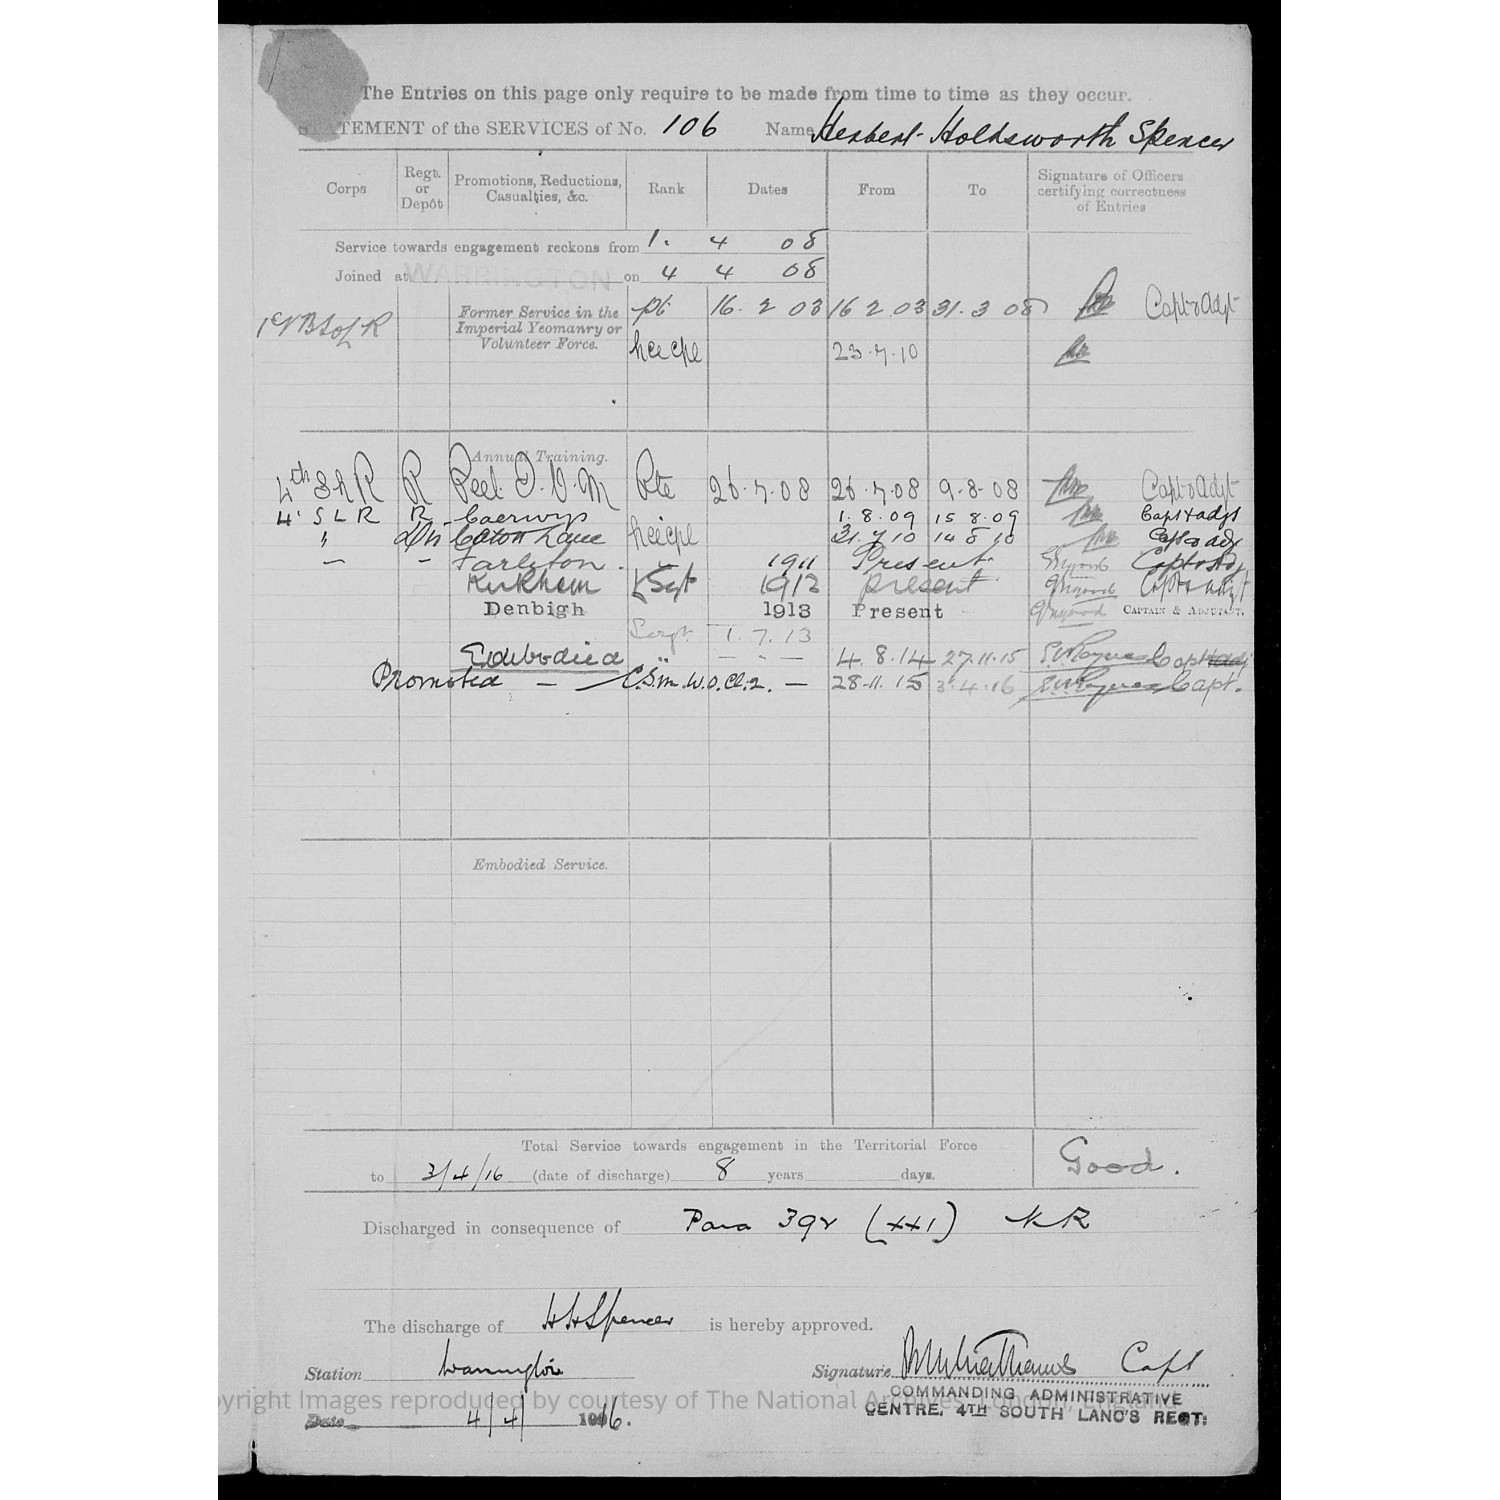 The Entries on this page only require to be made from time to time as they occur.
STATEMENT of the SERVICES of No. 106 Name Herbert Holdsworth Spencer
Corps Regt. or Depôt Promotions, Reductions, Casualties, &c. Rank Dates From To Signature of Officers certifying correctness of Entries
Service towards engagement reckons from 1. 4 08
Joined at WARRINGTON on 4 4 08
Former Service in the Imperial Yeomanry or Volunteer Force. pt 16. 2 03 16 2 03 31. 3 08 Capt & Adjt
23.7.10
Annual Training.
4th S L R R Peel. I.O.M Pte 26.7.08 26.7.08 9-8-08 Capt & Adjt
4' S L R R Caerwys 1.8.09 15 8.09 Capt & adjt
" Caton Lane 31.7 10 14 8 10 Capt & adj
— - Tarleton. 1911 Present Capt & Adj
Kirkham L/Sgt 1912 present Capt & adjt
Denbigh 1913 Present CAPTAIN & ADJUTANT.
Sergt. 1. 7. 13
Embodied " — - — 4. 8. 14 27.11.15 Capt
Promoted — C.S.M. W.O. Cl. 2. — 28.11.15 3.4.16 Capt.
Embodied Service.
Total Service towards engagement in the Territorial Force
to 3/4/16 (date of discharge) 8 years days. Good.
Discharged in consequence of Para 392 (xxi) K R
The discharge of H H Spencer is hereby approved.
Station Warrington Signature Capt
COMMANDING ADMINISTRATIVE
CENTRE, 4TH SOUTH LANC'S REGT:
Date 4/4/ 1916.
yright Images reproduced by courtesy of The National Archives, London, England